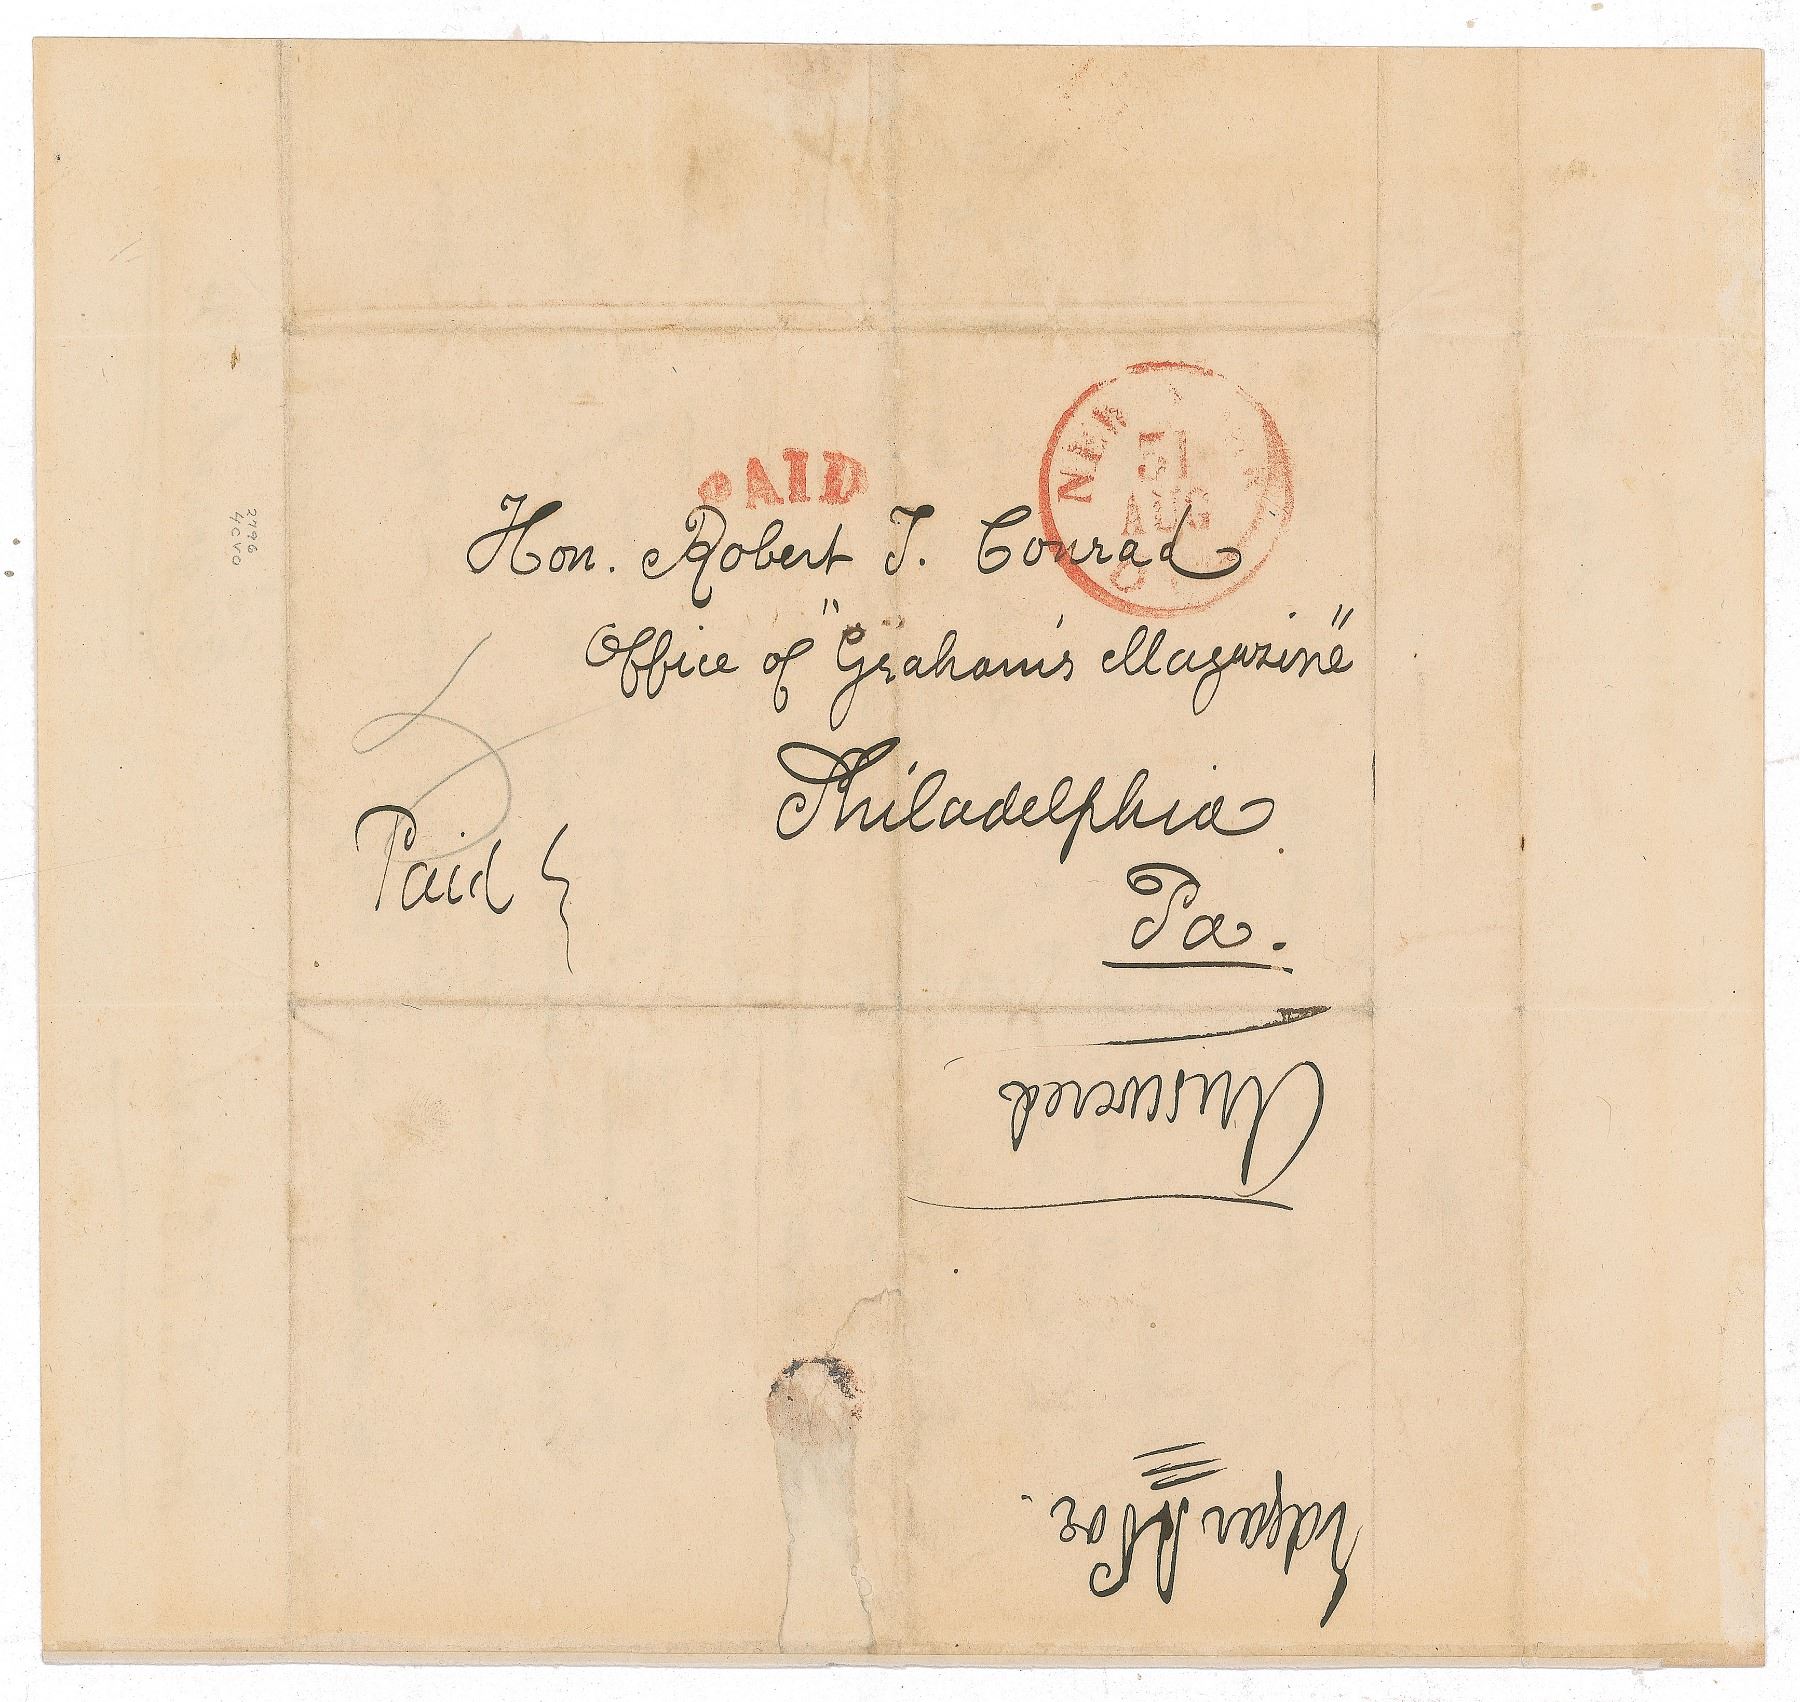 PAID
NEW
31
AUG
Hon. Robert T. Conrad
Office of "Graham's Magazine"
Philadelphia
Pa.
Paid
5
Answered
Edgar A Poe.